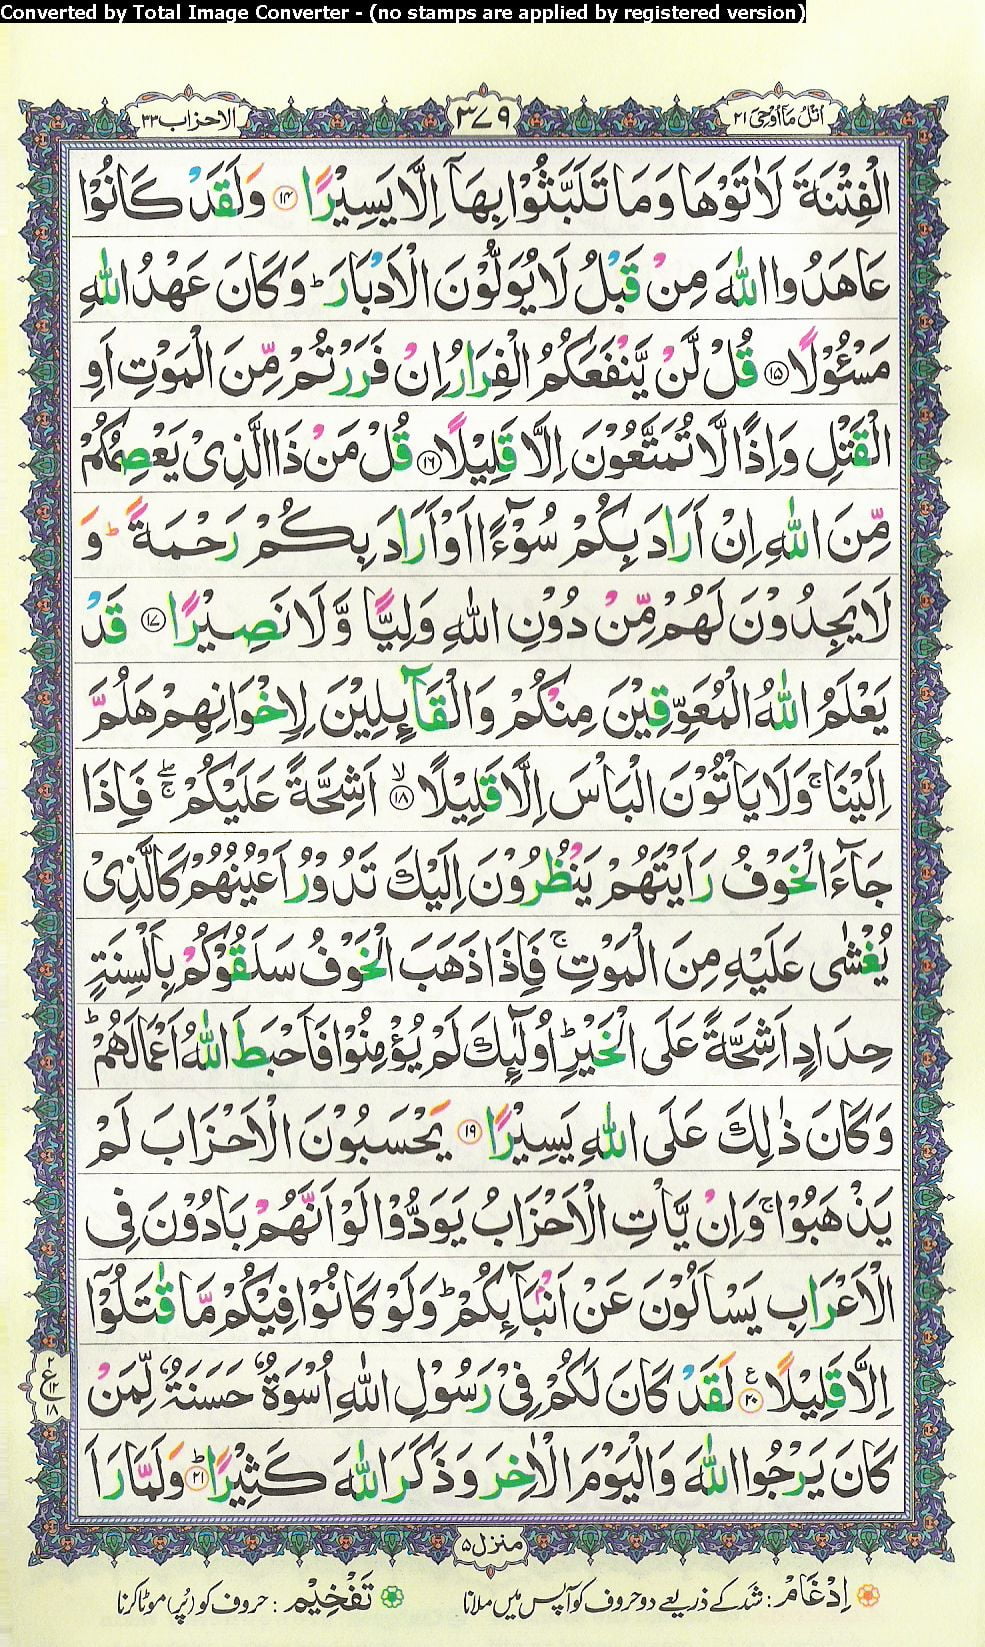 Converted by Total Image Converter - (no stamps are applied by registered version)
اُتْلُ مَاۤ اُوْحِیَ ۲۱
۳۷۹
الاحزاب ۳۳
الْفِتْنَةَ لَاٰتَوْهَا وَمَا تَلَبَّثُوْا بِهَاۤ اِلَّا یَسِیْرًا ۝۱۴ وَلَقَدْ كَانُوْا
عَاهَدُوا اللّٰهَ مِنْ قَبْلُ لَا یُوَلُّوْنَ الْاَدْبَارَ ؕ وَكَانَ عَهْدُ اللّٰهِ
مَسْـُٔوْلًا ۝۱۵ قُلْ لَّنْ یَّنْفَعَكُمُ الْفِرَارُ اِنْ فَرَرْتُمْ مِّنَ الْمَوْتِ اَوِ
الْقَتْلِ وَاِذًا لَّا تُمَتَّعُوْنَ اِلَّا قَلِیْلًا ۝۱۶ قُلْ مَنْ ذَا الَّذِیْ یَعْصِمُكُمْ
مِّنَ اللّٰهِ اِنْ اَرَادَ بِكُمْ سُوْٓءًا اَوْ اَرَادَ بِكُمْ رَحْمَةً ؕ وَ
لَا یَجِدُوْنَ لَهُمْ مِّنْ دُوْنِ اللّٰهِ وَلِیًّا وَّلَا نَصِیْرًا ۝۱۷ قَدْ
یَعْلَمُ اللّٰهُ الْمُعَوِّقِیْنَ مِنْكُمْ وَالْقَآىِٕلِیْنَ لِاِخْوَانِهِمْ هَلُمَّ
اِلَیْنَا ۚ وَلَا یَاْتُوْنَ الْبَاْسَ اِلَّا قَلِیْلًا ۝۱۸ۙ اَشِحَّةً عَلَیْكُمْ ۖۚ فَاِذَا
جَآءَ الْخَوْفُ رَاَیْتَهُمْ یَنْظُرُوْنَ اِلَیْكَ تَدُوْرُ اَعْیُنُهُمْ كَالَّذِیْ
یُغْشٰى عَلَیْهِ مِنَ الْمَوْتِ ۚ فَاِذَا ذَهَبَ الْخَوْفُ سَلَقُوْكُمْ بِاَلْسِنَةٍ
حِدَادٍ اَشِحَّةً عَلَى الْخَیْرِ ؕ اُولٰٓىِٕكَ لَمْ یُؤْمِنُوْا فَاَحْبَطَ اللّٰهُ اَعْمَالَهُمْ ؕ
وَكَانَ ذٰلِكَ عَلَى اللّٰهِ یَسِیْرًا ۝۱۹ یَحْسَبُوْنَ الْاَحْزَابَ لَمْ
یَذْهَبُوْا ۚ وَاِنْ یَّاْتِ الْاَحْزَابُ یَوَدُّوْا لَوْ اَنَّهُمْ بَادُوْنَ فِی
الْاَعْرَابِ یَسْاَلُوْنَ عَنْ اَنْۢبَآىِٕكُمْ ؕ وَلَوْ كَانُوْا فِیْكُمْ مَّا قٰتَلُوْۤا
اِلَّا قَلِیْلًا ۝۲۰ ع لَقَدْ كَانَ لَكُمْ فِیْ رَسُوْلِ اللّٰهِ اُسْوَةٌ حَسَنَةٌ لِّمَنْ
كَانَ یَرْجُوا اللّٰهَ وَالْیَوْمَ الْاٰخِرَ وَذَكَرَ اللّٰهَ كَثِیْرًا ؕ۝۲۱ وَلَمَّا رَاَ
۲
ع ۱۲
۱۸
منزل ۵
اِدْغَام : شد کے ذریعے دو حروف کو آپس میں ملانا
تَفْخِیْم : حروف کو (پُر) موٹا کرنا